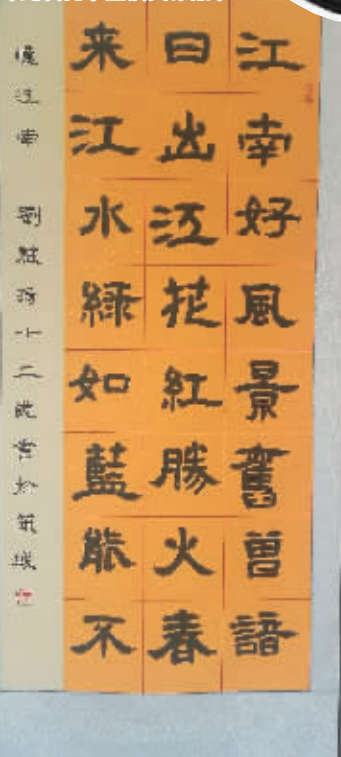 江南好風景舊曾諳
日出江花紅勝火春
来江水綠如藍能不
憶江南 劉 十二歲書於 城